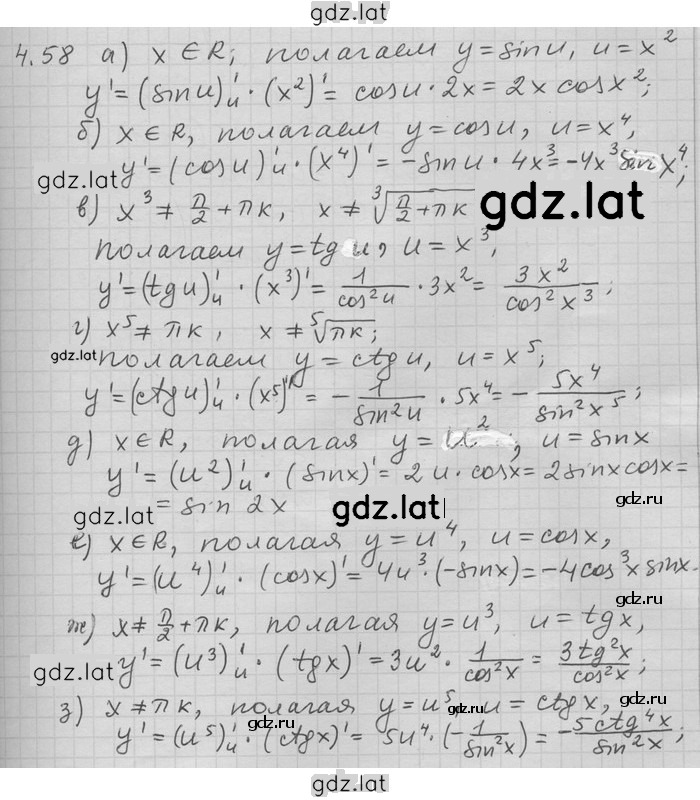 gdz.lat
4.58 а) x ∈ R; полагаем y = sin u, u = x²
y' = (sin u)'ᵤ · (x²)' = cos u · 2x = 2x cos x²;
б) x ∈ R, полагаем y = cos u, u = x⁴,
gdz.lat y' = (cos u)'ᵤ · (x⁴)' = -sin u · 4x³ = -4x³ sin x⁴;
в) x³ ≠ π/2 + πк, x ≠ ∛(π/2 + πк) gdz.lat
полагаем y = tg u, u = x³,
y' = (tg u)'ᵤ · (x³)' = 1/cos²u · 3x² = 3x²/cos²x³;
г) x⁵ ≠ πк, x ≠ ⁵√(πк);
gdz.lat полагаем y = ctg u, u = x⁵;
y' = (ctg u)'ᵤ · (x⁵)' = -1/sin²u · 5x⁴ = -5x⁴/sin²x⁵;
д) x ∈ R, полагая y = u², u = sin x
y' = (u²)'ᵤ · (sin x)' = 2u · cos x = 2 sin x cos x =
gdz.lat = sin 2x gdz.lat gdz.lat
е) x ∈ R, полагая y = u⁴, u = cos x,
y' = (u⁴)'ᵤ · (cos x)' = 4u³ · (-sin x) = -4cos³x sin x.
ж) x ≠ π/2 + πк, полагая y = u³, u = tg x,
gdz.lat y' = (u³)'ᵤ · (tg x)' = 3u² · 1/cos²x = 3tg²x/cos²x;
gdz.lat
з) x ≠ πк, полагая y = u⁵, u = ctg x,
gdz.lat gdz.lat
y' = (u⁵)'ᵤ · (ctg x)' = 5u⁴ · (-1/sin²x) = -5ctg⁴x/sin²x;
gdz.lat